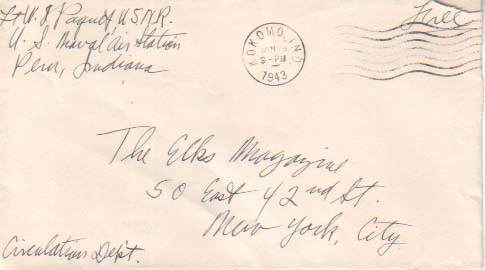 U.S.N.R.
U. S. Naval Air Station
Peru, Indiana
Free
KOKOMO, IND.
JAN
8-PM
1943
The Elks Magazine
50 East 42nd St.
New York, City
Circulation Dept.